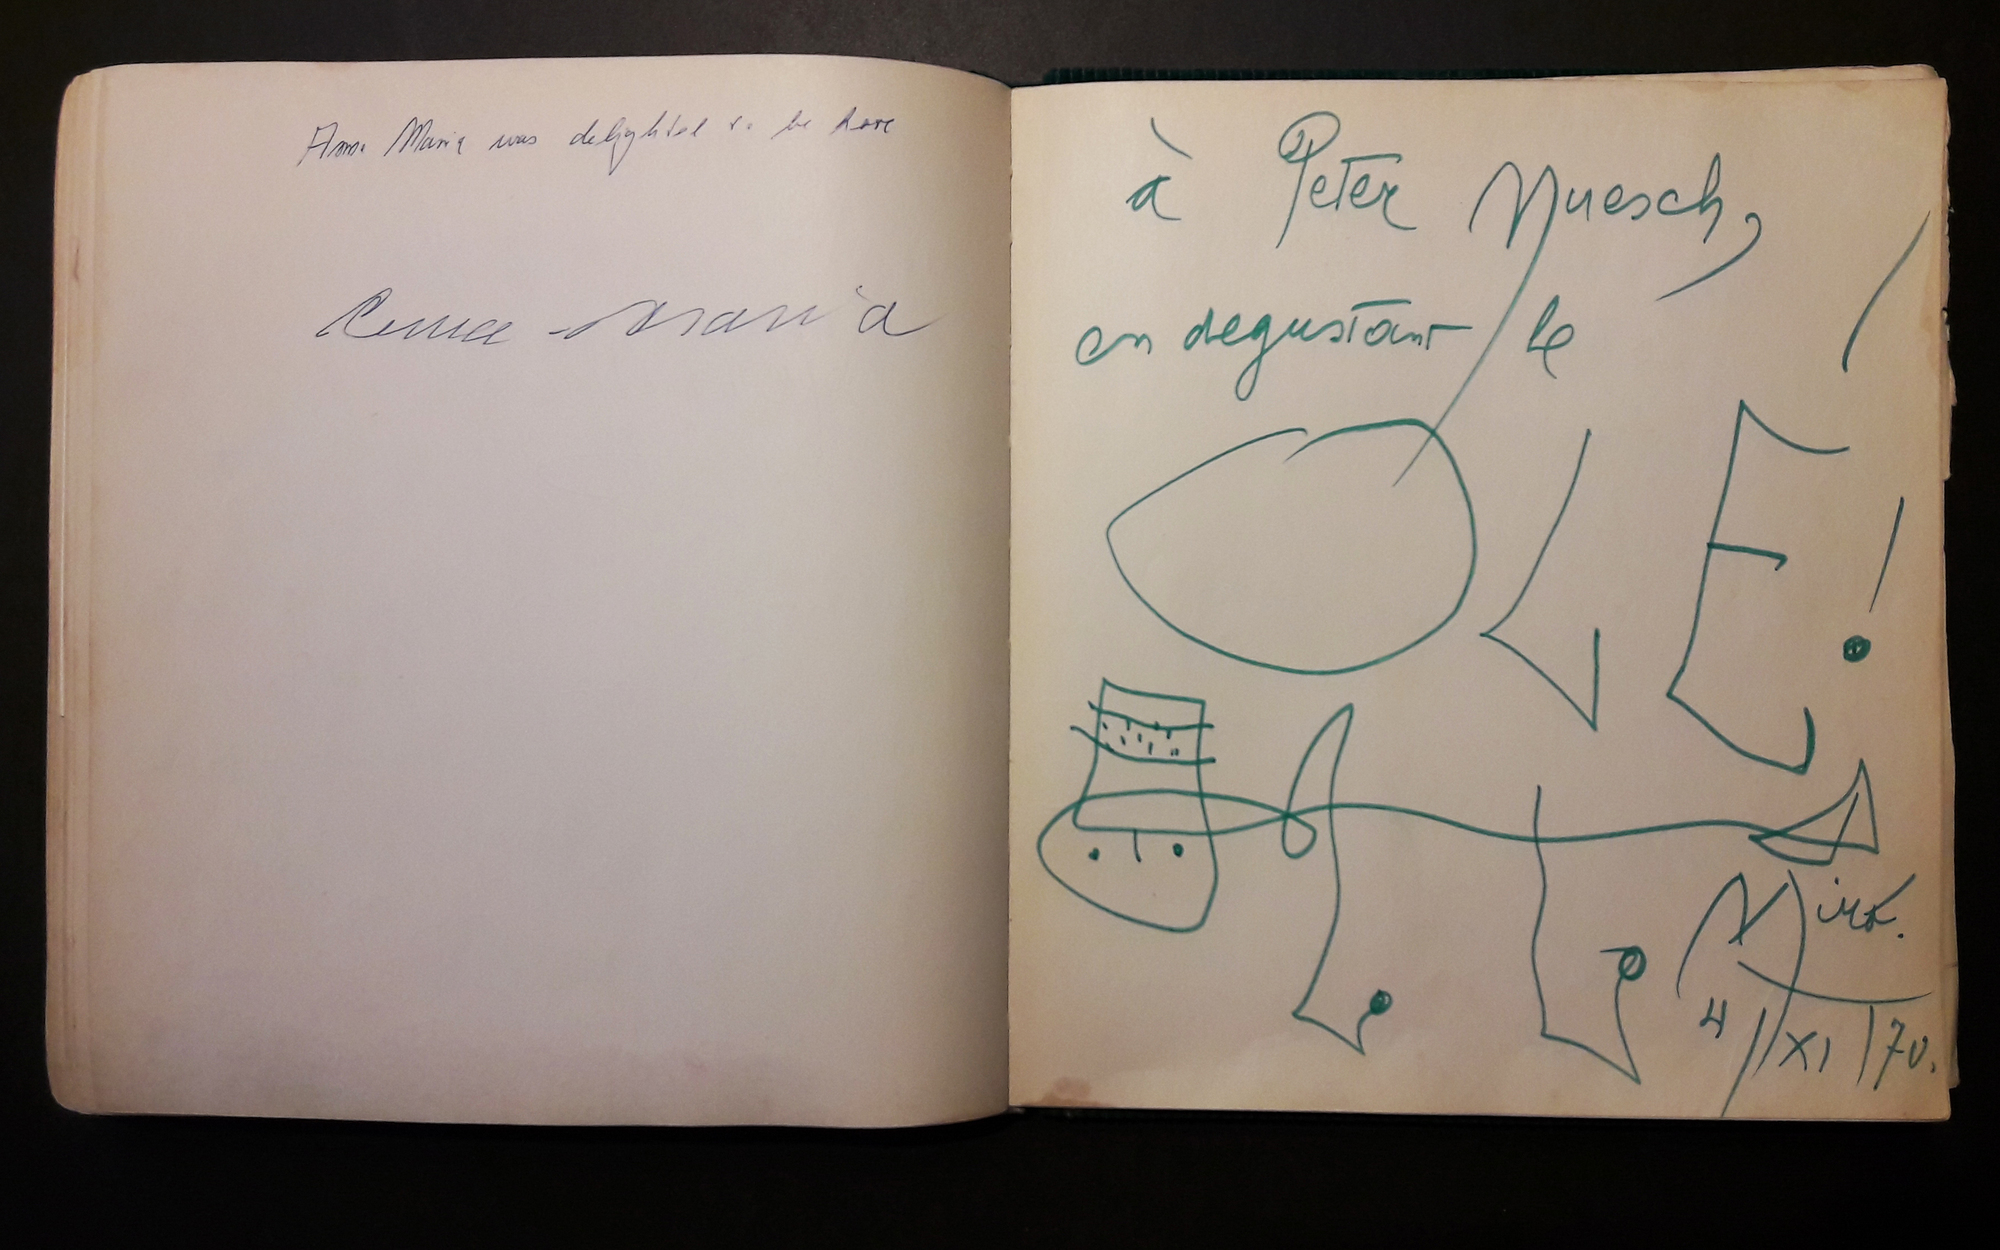 Anna Maria was delighted to be here
Anna Maria
à Peter Nuesch,
en degustant le
OLÉ!
Miró.
4/XI/70.